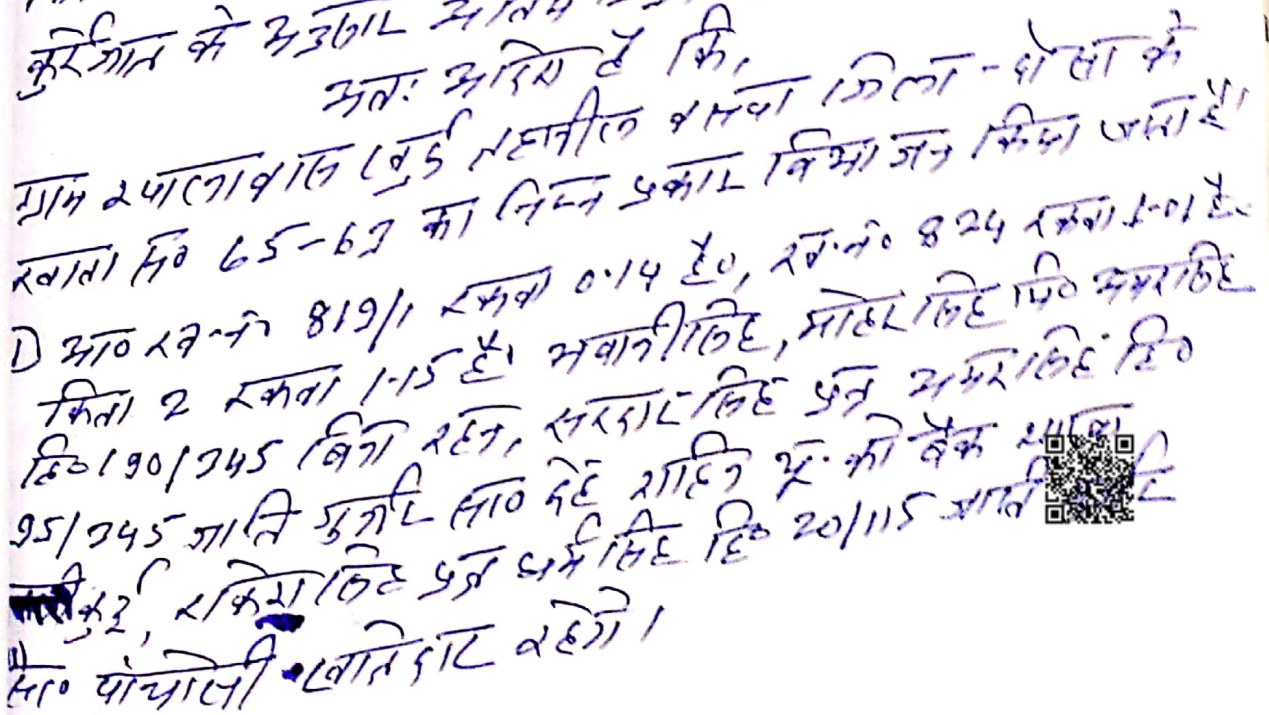 कुर्रेजात के अनुसार अंतिम
अतः आदेश है कि,
ग्राम श्यालावास खुर्द तहसील बसवा जिला - दौसा के
खाता सं० 65-63 का निम्न प्रकार विभाजन किया जाता है।
1) आ० ख० नं० 819/1 रकबा 0.14 है०, ख० नं० 824 रकबा 1.01 है०
किता 2 रकबा 1.15 है० भवानीसिंह, मोहरसिंह पि० अमरसिंह
हि० 190/345 बिना रहन, सरदारसिंह पुत्र अमरसिंह हि०
95/345 जाति गुर्जर सा० देह राहिन भू. को बैंक शाखा
कुई, राकेशसिंह पुत्र धर्मसिंह हि० 20/115 जाति
सा० पांचोली खातेदार रहेगे।